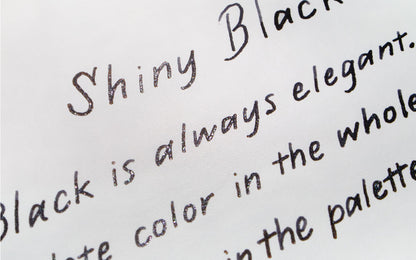 Shiny Black
Black is always elegant.
color in the whole
in the palette